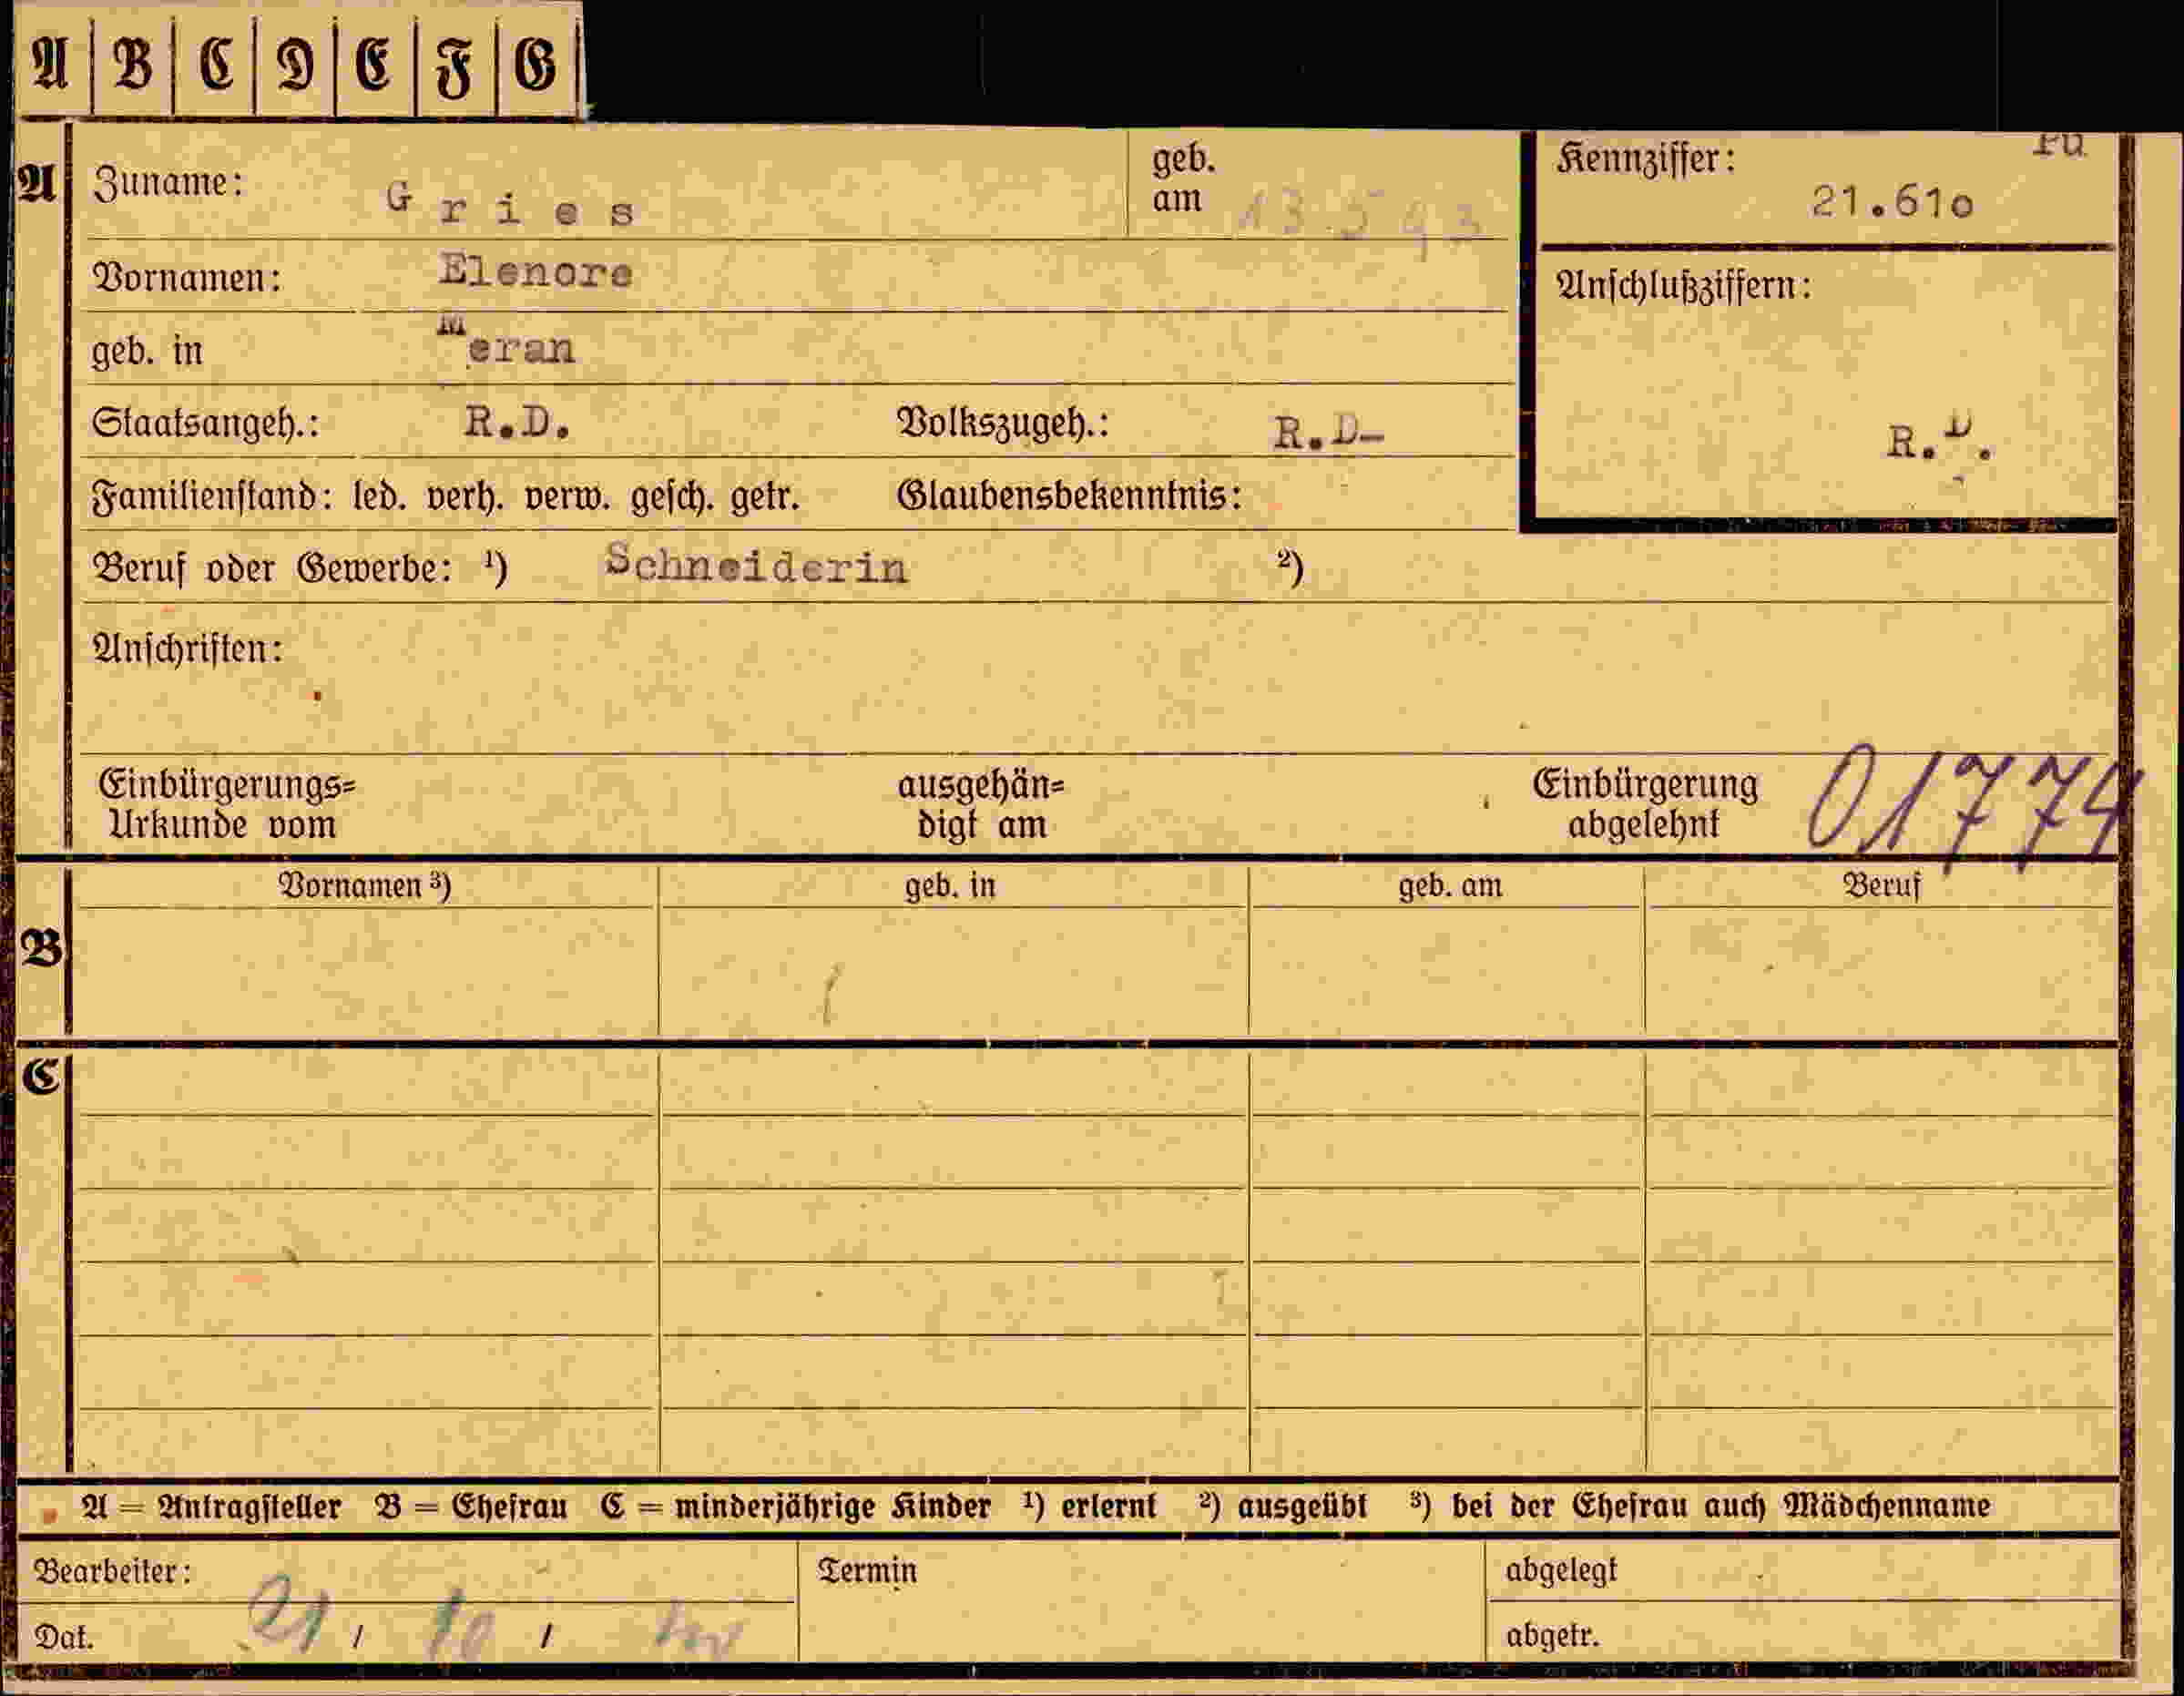 A B C D E F G
A Zuname: Gries geb. am 13.5.93 Kennziffer: 21.61o
Vornamen: Elenore Anschlußziffern:
geb. in Meran
Staatsangeh.: R.D. Volkszugeh.: R.D- R.D.
Familienstand: led. verh. verw. gesch. getr. Glaubensbekenntnis:
Beruf oder Gewerbe: ¹) Schneiderin ²)
Anschriften:
Einbürgerungs= ausgehän= Einbürgerung 01774
Urkunde vom digt am abgelehnt
Vornamen ³) geb. in geb. am Beruf
B
C
A = Antragsteller B = Ehefrau C = minderjährige Kinder ¹) erlernt ²) ausgeübt ³) bei der Ehefrau auch Mädchenname
Bearbeiter: Termin abgelegt
Dat. 21 / 10 / abgetr.